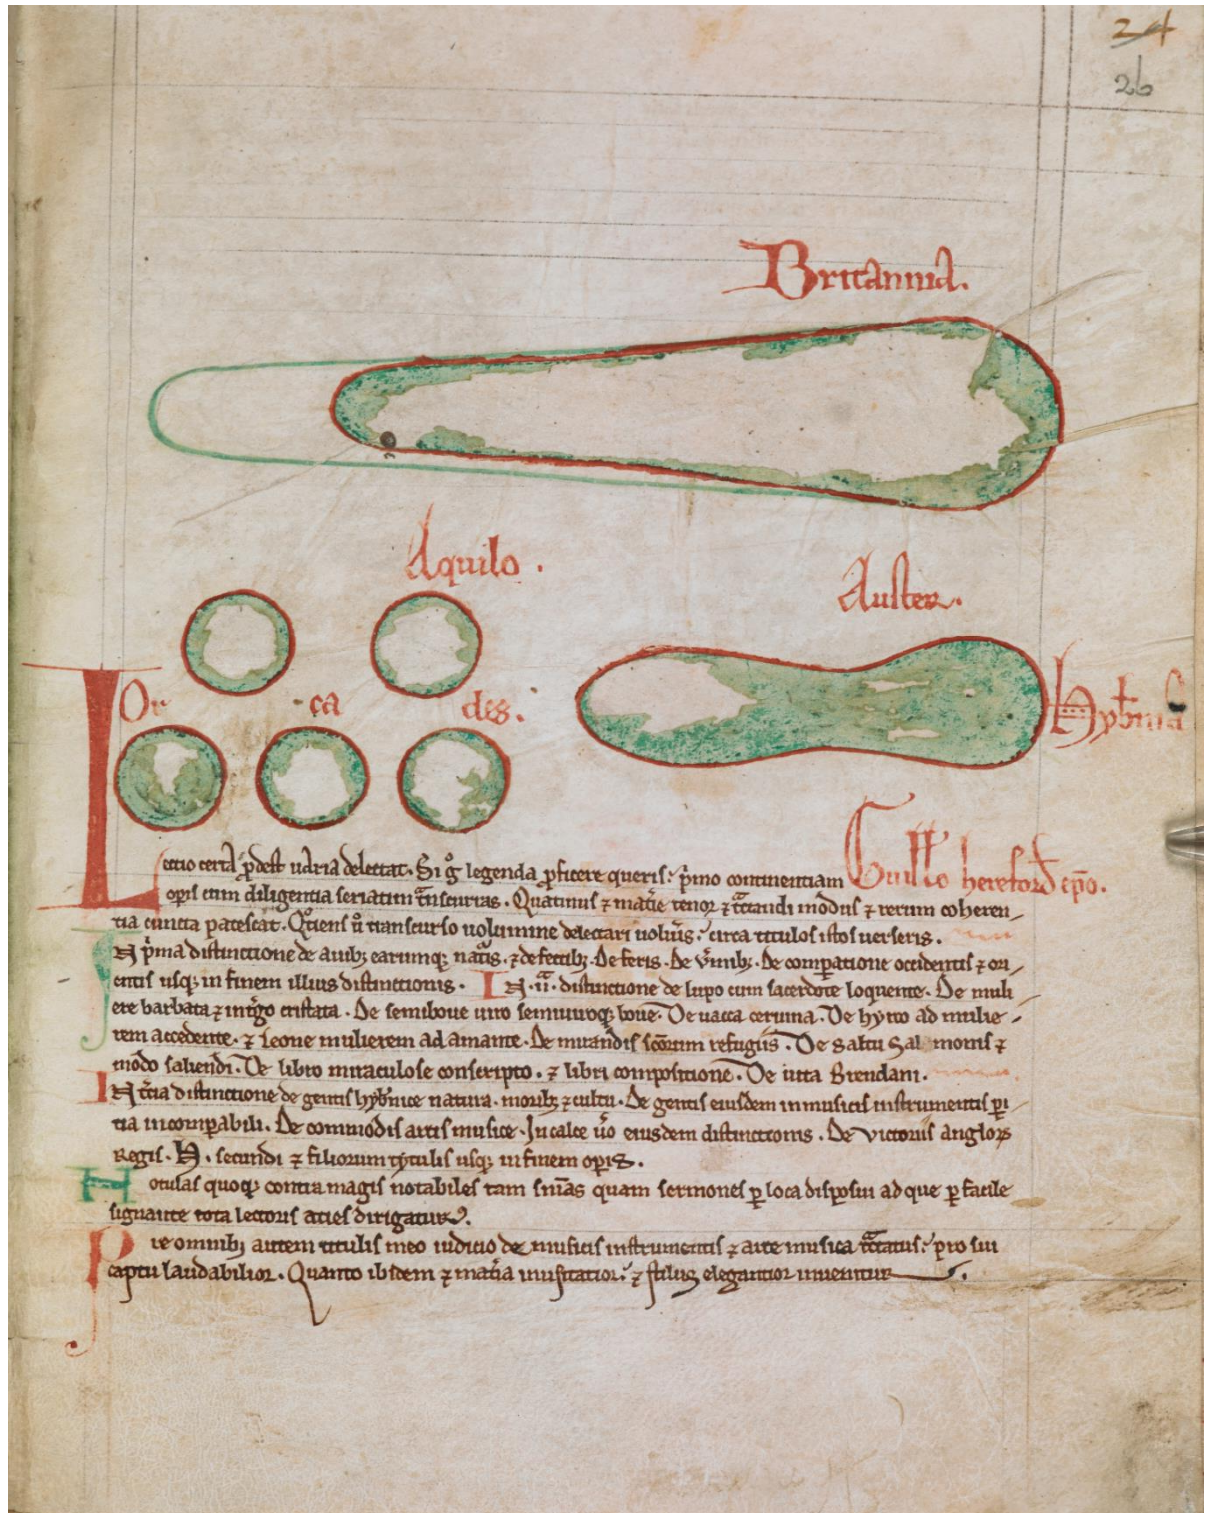 24
26
Britannia.
Aquilo.
Auster.
Or ca des.
Hyb̄nia
Lectio certa p̄dest uaria delectat. Si g̊ legenda ꝓficere queris: p̍mo continentiam Guill̄o hereford̄ ep̄o.
op̍is cum diligentia seriatim t̄nscurras. Quatinus ⁊ mat̄ie tenor ⁊ t̄ctandi modus ⁊ rerum coheren
tia cuncta patescat. Q̊tiens u̍ transcurso uolumine delectari uolu̍is: circa titulos istos uerseris.
In p̍ma distinctione de auib; earumq; nat̄is. ⁊ defectib;. De feris. De v̍mib;. De comꝑatione occidentis ⁊ ori
entis usq; in finem illius distinctionis. In .ii.ᵃ distinctione de lupo cum sacerdote loquente. De muli
ere barbata ⁊ iurgo cristata. De semiboue uiro semiuiroq; boue. De uacca ceruina. De hyrco ad mulie
rem accedente. ⁊ leone mulierem adamante. De mirandis sc̄orum refugiis. De saltu Salmonis ⁊
modo saliendi. De libro miraculose conscripto. ⁊ libri compositione. De iurta Brendani.
In t̍cia distinctione de gentis hyb̍nice natura. morib; ⁊ cultu. De gentis eiusdem in musicis instrumentis ꝑi
tia incomꝑabili. De commodis artis musice. In calce u̍o eiusdem distinctionis. De victoriis anglorꝝ
Regis .H. secundi ⁊ filiorum tytulis usq; in finem op̍is.
Notulas quoq; contra magis notabiles tam sn̄ias quam sermones ꝑ loca disposui ad que ꝑ facile
signante tota lectoris acies dirigatur.
Pre omnib; autem titulis meo iudicio de musicis instrumentis ⁊ arte musica t̄ctatus: pro sui
captu laudabilior. Quanto ibidem ⁊ mat̄ia inusitatior: ⁊ stilus elegantior inuenitur.